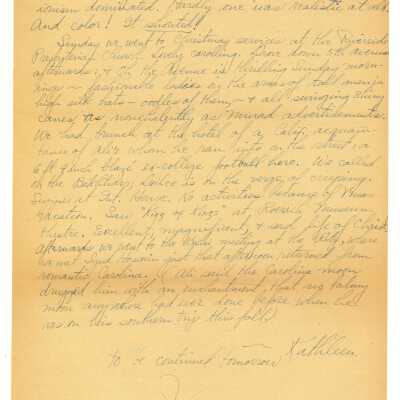 ionism dominated. Hardly one was realistic at all.
And color! It shouted!
Sunday we went to Christmas services at the Riverside
Presbyterian Church. Lovely carolling. Drove down 5th Avenue
afterwards; & Oh the Avenue is thrilling Sunday morn-
ings — fashionable ladies on the arms of tall men in
high silk hats — oodles of them — & all swinging shiny
canes, as nonchalantly as Murad advertisements.
We had brunch at the hotel of a Calif. acquain-
tance of Al's whom he ran into on the street; a
6 ft. 4 inch blasé ex-college football hero. We called
on the who is on the verge of
Supper at Ft. House. No activities because of Xmas
Vacation. Saw "King of Kings" at Museum
theatre. Excellent, magnificent, & real life of Christ.
afterwards we went to the meeting at the where
we met just that afternoon, returned from
romantic Carolina. Al said the Carolina moon
drugged him with an enchantment that no
moon anywhere had ever done before when he
was on his southern trip this fall.
To be continued tomorrow Kathleen.